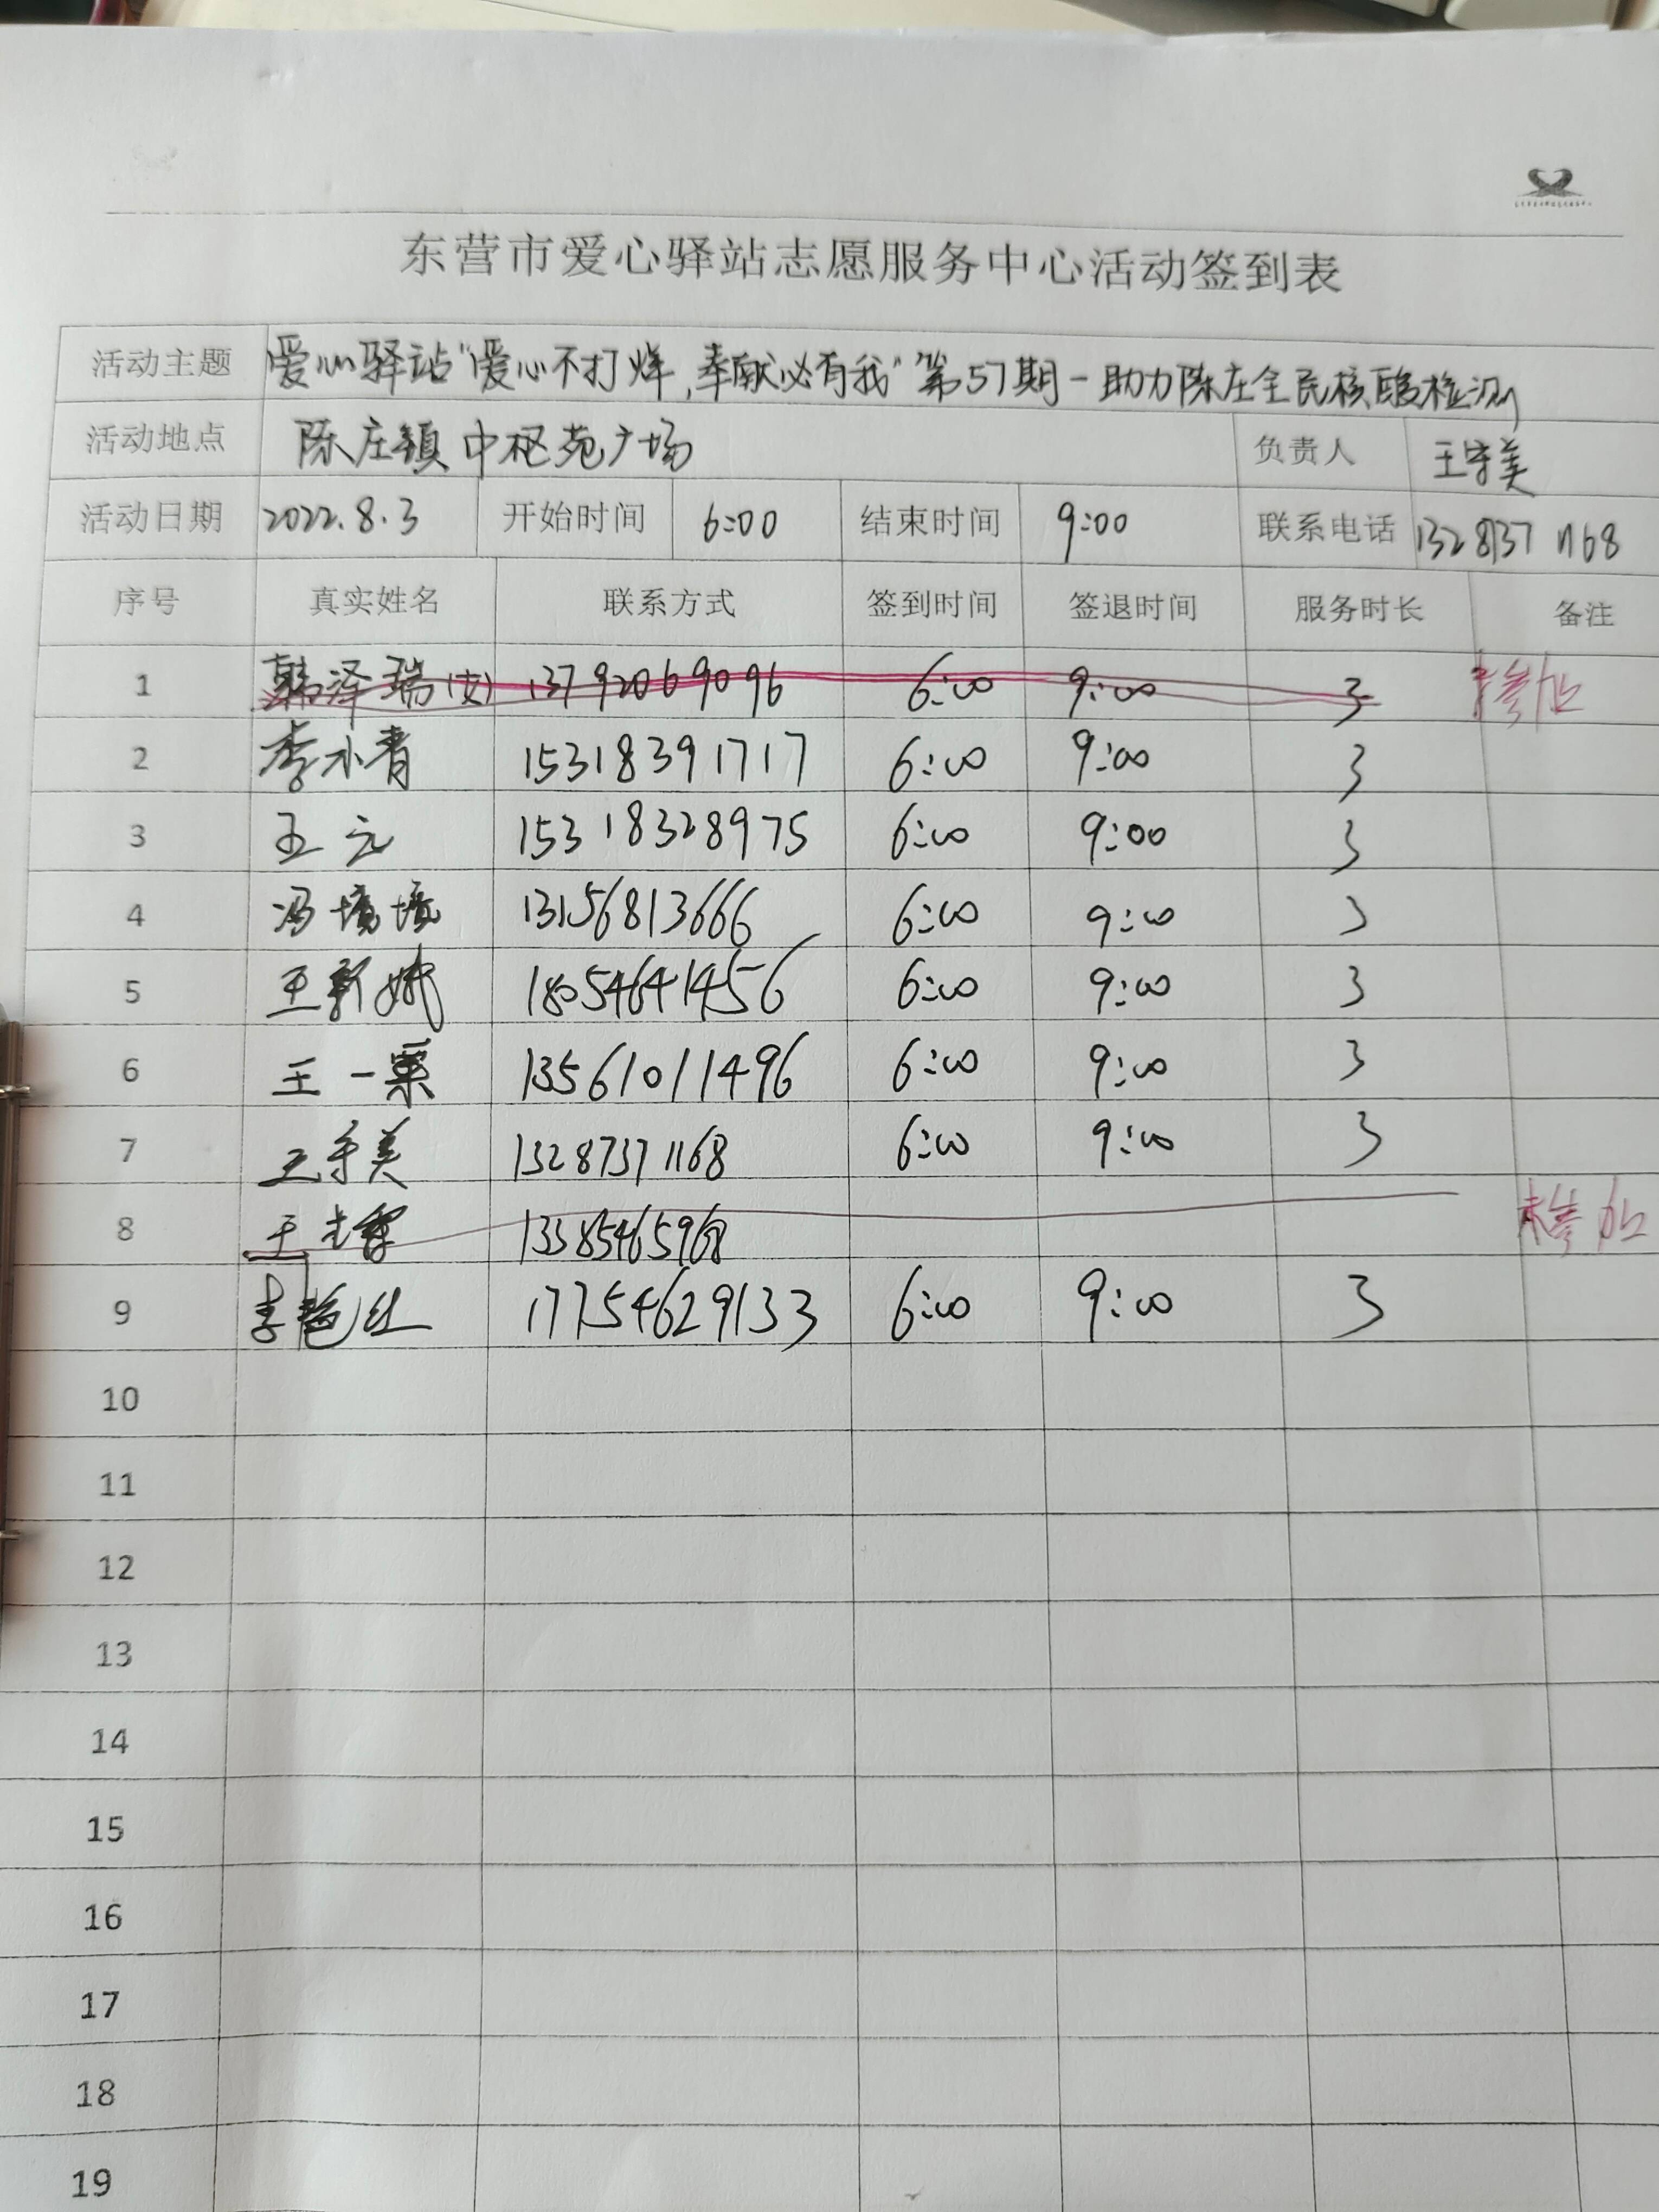 东营市爱心驿站志愿服务中心活动签到表
活动主题 爱心驿站"爱心不打烊,奉献必有我"第57期-助力陈庄全民核酸检测
活动地点 陈庄镇中枢苑广场 负责人 王守美
活动日期 2022.8.3 开始时间 6:00 结束时间 9:00 联系电话 13287371168
序号 真实姓名 联系方式 签到时间 签退时间 服务时长 备注
1 韩泽瑞(女) 13792069096 6:00 9:00 3 未参加
2 李水青 15318391717 6:00 9:00 3
3 王元 15318328975 6:00 9:00 3
4 冯境境 13156813666 6:00 9:00 3
5 王新娥 18054641456 6:00 9:00 3
6 王一粟 13561011496 6:00 9:00 3
7 王守美 13287371168 6:00 9:00 3
8 王 13385465968 未参加
9 李艳红 17754629133 6:00 9:00 3
10
11
12
13
14
15
16
17
18
19